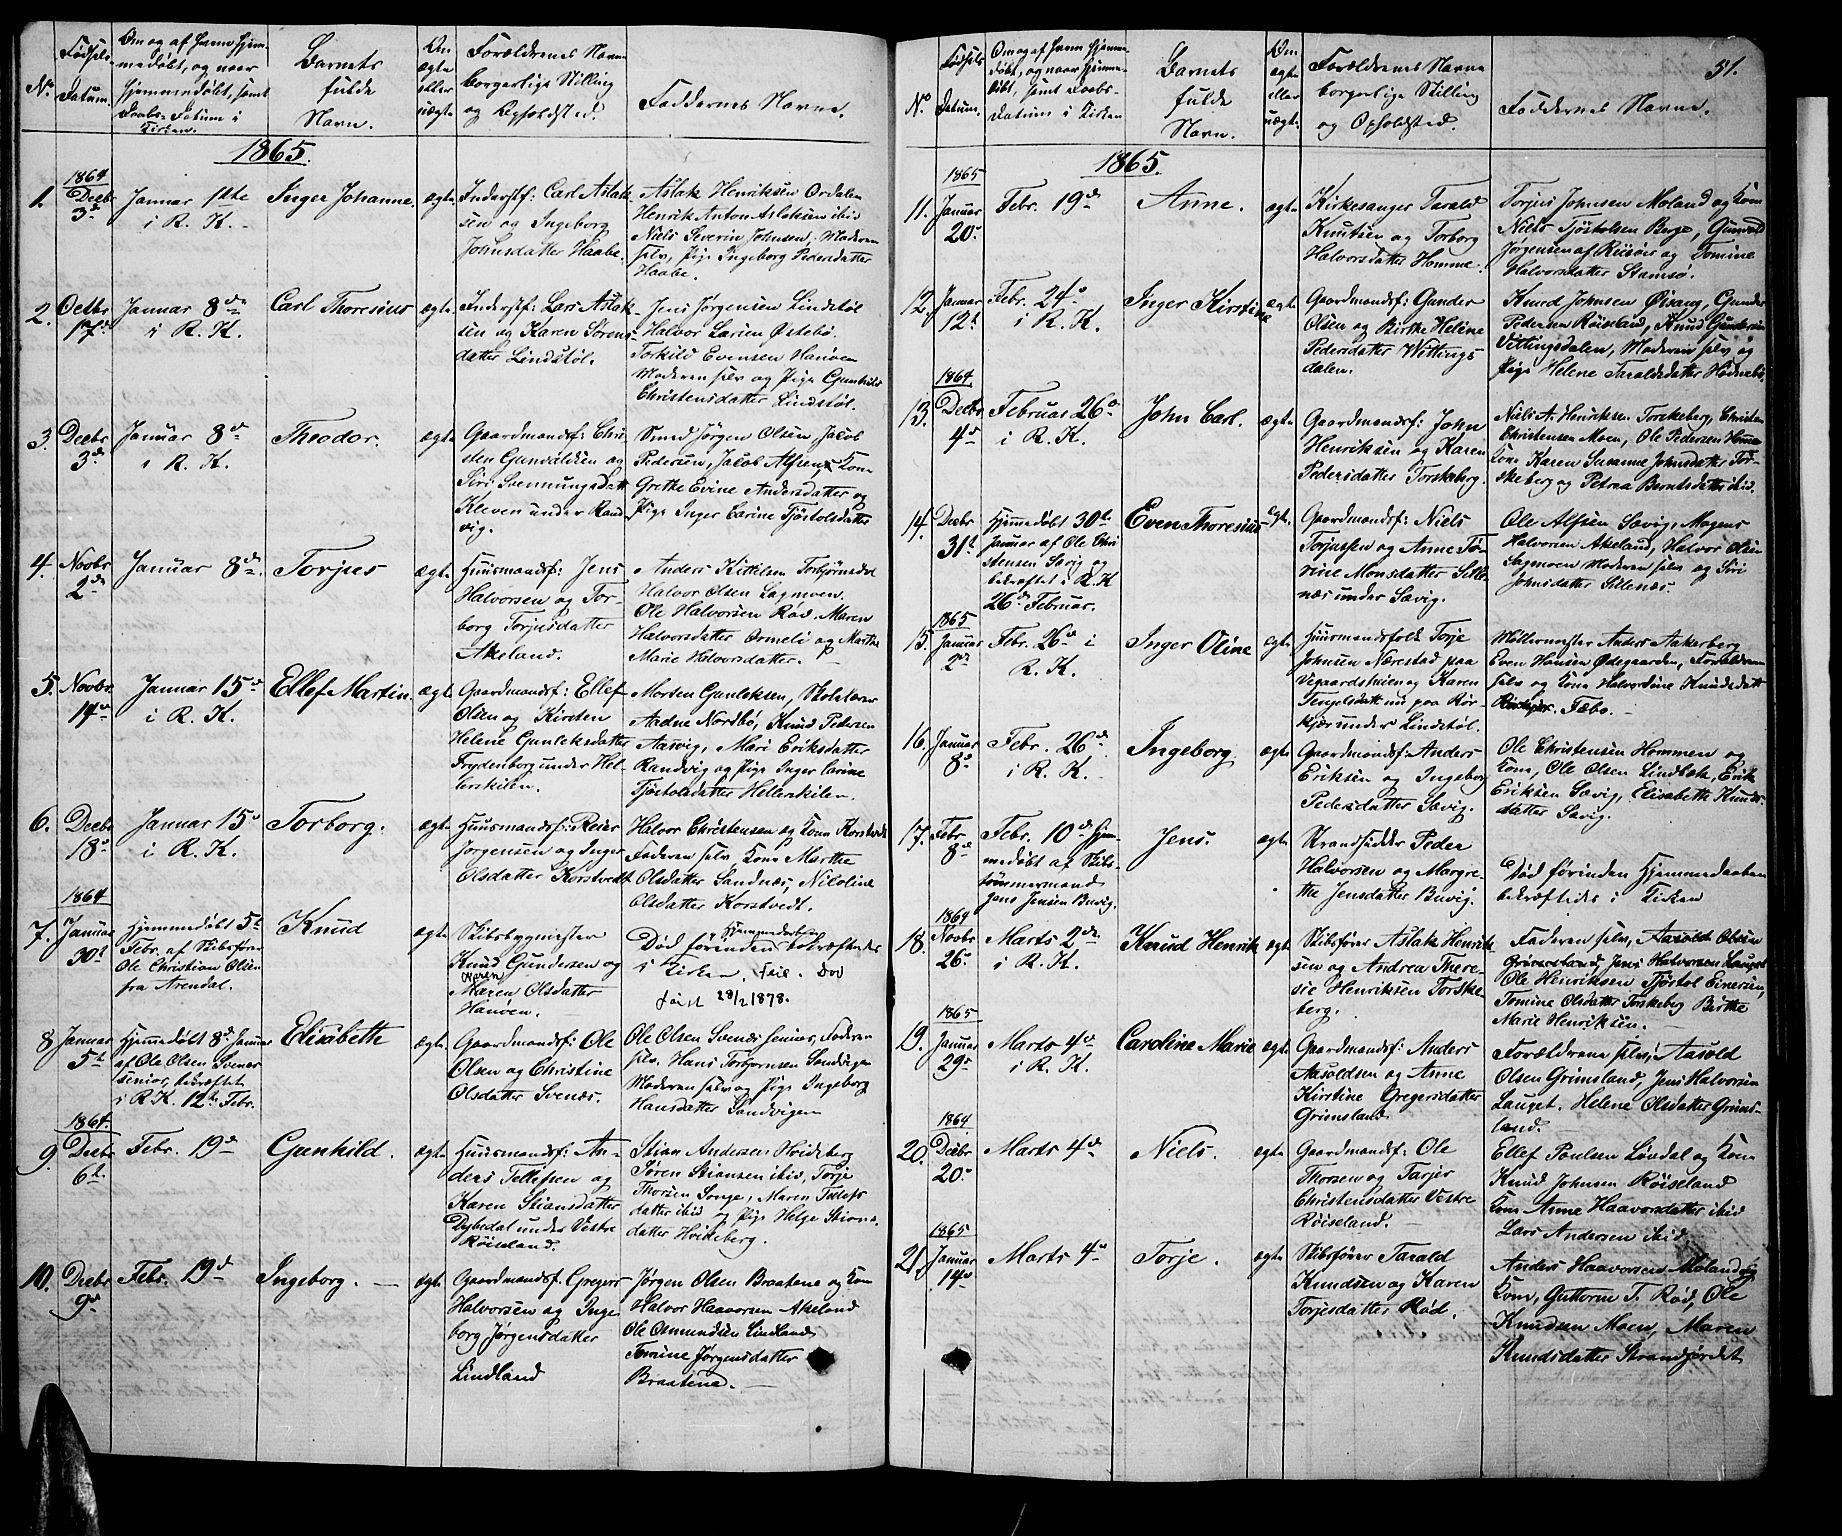 No.
Fødsels
Datum.
Om og af hvem hjem-
medøbt, og naar
hjemmedøbt, samt
Daabs-Datum i
Kirken.
Barnets
fulde
Navn.
Om
ægte
eller
uægte
Forældrenes Navne
borgerlige Stilling
og Opholdsted.
Faddernes Navne.
1865.
1.
1864
Decbr
3d
Januar 1ste
i R. K. -
Inger Johanne.
ægte
Inderstf: Carl Aslak-
sen og Ingeborg
Johnsdatter Haabe.
Aslak Henriksen Ordalen
Henrik Anton Aslaksen ibid
Niels Severin Johnsen, Moderen
selv, Pige Ingeborg Pedersdatter
Haabe.
2.
Octbr
17d
Januar 8de
i R. K.
Carl Thoresius
ægte
Inderstf: Lars Aslak-
sen og Karen Sørens-
datter Lindstøl.
Jens Jørgensen Lindstøl
Halvor Larsen Østebø.
Torkild Evensen Hanven
Moderen selv og Pige Gunhild
Christensdatter Lindstøl.
3.
Decbr
3de
Januar 8de
i R. K.
Theodor.
ægte
Gaardmandsf: Chri-
sten Gunvaldsen og
Siri Svennungsdatt
Kleven under Rand-
vig.
Smed Jørgen Olsen, Jacob
Pedersen, Jacob Alfsens Kone
Grethe Evine Andersdatter og
Pige Inger Carine Tjøstolsdatter
4.
Novbr
2de
Januar 8de
Torjus
ægte
Huusmandsf: Jens
Halvorsen og Tor-
borg Torjusdatter
Akeland.
Anders Kittelsen Torbjørnsdal
Halvor Olsen Sagmoen.
Ole Halvorsen Rød, Maren
Halvorsdatter Ormeli og Marthe
Marie Halvorsdatter.
5.
Novbr
14de
Januar 15de
i R. K.
Ellef Martin.
ægte
Gaardmandsf: Ellef
Olsen og Kirsten
Helene Gunleksdatter
Frydenborg under Hel-
lerskilen.
Morten Gunleksen, Skolelærer
Aadne Nordbø, Knud Pedersen
Aasvig, Mari Eriksdatter
Randvig og Pige Inger Carine
Tjøstolsdatter Hellerskilen.
6.
Decbr
18d
Januar 15d
i R. K.
Torborg.
ægte
Huusmandsf: Reier
Jørgensen og Inger
Olsdatter Korstvedt
Halvor Christensen og Kone Korstvedt
Faderen selv, Kone Marthe
Olsdatter Sandnæs, Nicoline
Olsdatter Korstvedt.
7.
1864
Januar
30t
Hjemmedøbt 5t
Febr. af Skibsfører
Ole Christian Olsen
fra Arendal.
Knud
ægte
Skibsbygmester
Knud Gundersen og
Maren
Maren Olsdatter
Hanven.
Død førinden Hjemmedaaben bekræftedes
i Kirken. Feil. Dod
først 28/2 1878.
8
Januar
5t
Hjemmedøbt 8d Januar
af Ole Olsen Svenes
senior, bekræftet
i R.K. 12te Febr.
Elisabeth
ægte
Gaardmandsf: Ole
Olsen og Christine
Olsdatter Svenæs.
Ole Olsen Svenæs senior, Faderen
selv, Hans Torbjørnsen Sandvigen
Moderen selv og Pige Ingeborg
Hansdatter Sandvigen
9.
1864.
Decbr
6t.
Febr. 19de
Gunhild.
ægte
Huusmandsf: An-
ders Tellefsen og
Karen Stiansdatter
Dybedal under Vestre
Røiseland.
Stian Andersen Hvideberg
Søren Stiansen ibid, Torje
Thorsen Songe, Maren Tellefs
datter ibid og Pige Helge Stians-
datter Hvideberg.
10.
Decbr
9d
Febr. 19d
Ingeborg. -
ægte
Gaardmandsf. Gregers
Halvorsen og Inge
borg Jørgensdatter
Lindland
Jørgen Olsen Braatene og Kone
Halvor Haavorsen Akeland
Ole Osmundsen Lindland
Tomine Jørgensdatter
Braatene. -
51.
No
Fødsels
Datum.
Om og af hvem hjemme-
døbt, og naar hjemme-
døbt, samt Daabs-
Datum i Kirken
Barnets
fulde
Navn.
Om
ægte
eller
uægte
Forældrenes Navne
borgerlige Stilling
og Opholdsted.
Faddernes Navne.
1865.
11.
1865
Januar
20d
Febr. 19de
Anne.
ægte
Kirkesanger Tarald
Knutsen og Torborg
Halvorsdatter Homme.
Torjus Johnsen Moland og Kone
Niels Tjøstolsen Berge, Gunvald
Jørgensen af Riisøer og Tomine
Halvorsdatter Stamsø.
12.
Januar
12t
Febr. 24d
i R. K.
Inger Kirstine
ægte
Gaardmandsf: Gunder
Olsen og Birthe Helene
Pedersdatter Wittings
dalen.
Knud Johnsen Øisang, Gunder
Pedersen Røiseland, Knud Gundersen
Vittingsdalen, Moderen selv og
Pige Helene Taraldsdatter Hødnebø.
13.
1864
Decbr
4de
Februar 26d
i R. K.
John Carl.
ægte
Gaardmandsf: John
Henriksen og Karen
Pedersdatter Torskeberg.
Niels A. Henriksen Torskeberg, Christen
Christensen Moen, Ole Pedersen Homme
Kone Karen Susanne Johnsdatter Tor-
skeberg og Petrea Berntsdatter ibid.
14.
Decbr
31t
Hjemmedøbt 30te
Januar af Ole Chri
stensen Savig og
bekræftet i R. K
26de Februar.
Even Thoresius
ægte.
Gaardmandsf: Niels
Torjussen og Anne To-
rine Monsdatter Sille-
næs under Savig.
Ole Alfsen Savig, Mogens
Halvorsen Akeland, Halvor Olsen
Sagmoen Moderen selv og Siri
Johnsdatter Sillenæs.
15.
1865
Januar
2de
Febr. 26de i
R. K.
Inger Oline
ægte
Huusmandsfolk Torje
Johnsen Nærestad paa
Vegaardsheien og Karen
Tengelsdatt nu paa Rør-
kjær under Lindstøl.
Møllermester Anders Aakerberg
Even Hansen Ødegaarden, Forældrene
selv og Kone Halvordine Knudsdatt
Fæbo. -
16.
Januar
8d
Febr. 26de
i R. K.
Ingeborg
ægte
Gaardmandsf: Anders
Eriksen og Ingeborg
Pedersdatter Savig.
Ole Christensen Hommen og
Kone, Ole Olsen Lindbæk, Erik
Eriksen Savig, Elisabeth Knuds-
datter Savig.
17.
Febr.
8de
Febr. 10de hjem-
medøbt af Skibs-
tømmermand
Jens Jensen Buvig.
Jens.
ægte
Strandsidder Peder
Halvorsen og Margre-
the Jensdatter Buvig.
Død førinden Hjemmedaaben
bekræftedes i Kirken
18.
1864
Novbr
26d
Marts 2de
i R. K.
Knud Henrik
ægte
Skibsfører Aslak Henrik-
sen og Andrea There-
sie Henriksen Torske-
berg.
Faderen selv, Aasold Olsen
Grimsland, Jens Halvorsen Lauget
Ole Henriksen Tjøstol Einersen,
Tomine Olsdatter Torskeberg Birthe
Marie Henriksen. -
19.
1865
Januar
29d
Marts 4de
i R. K.
Caroline Marie
ægte
Gaardmandsf: Anders
Aasoldsen og Anne
Kirstine Gregersdatter
Grimsland
Forældrene selv, Aasold
Olsen Grimsland, Jens Halvorsen
Lauget. Helene Olsdatter Grims-
land.
20.
1864
Decbr
20d
Marts 4de
Niels.
ægte
Gaardmandsf: Ole
Thorsen og Tarjer
Christensdatter Vestre
Røiseland.
Ellef Poulsen Lindal og Kone
Knud Johnsen Røiseland
Kone Anne Haavorsdatter ibid
Lars Andersen ibid.
21.
1865
Januar
14de
Marts 4d
Torje.
ægte
Skibsfører Tarald
Knudsen og Karen
Torjusdatter Rød.
Anders Haavorsen Moland og
Kone, Guttorm T. Rød, Ole
Knudsen Moen, Maren
Knudsdatter Strandfjordet